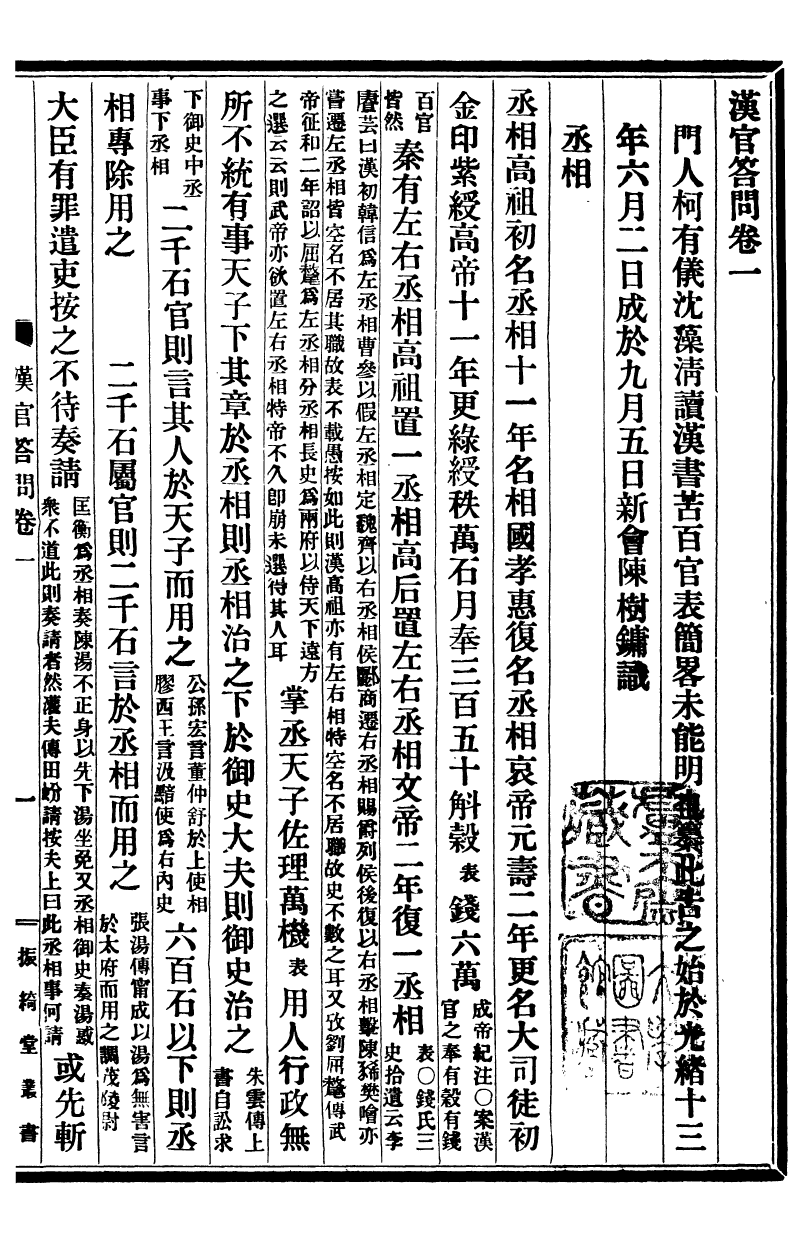 漢官答問卷一
門人柯有儀沈藻清讀漢書苦百官表簡畧未能明也纂此告之始於光緒十三
年六月二日成於九月五日新會陳樹鏞識
丞相
丞相高祖初名丞相十一年名相國孝惠復名丞相哀帝元壽二年更名大司徒初
金印紫綬高帝十一年更綠綬秩萬石月奉三百五十斛穀表錢六萬成帝紀注○案漢官之奉有穀有錢
百官皆然秦有左右丞相高祖置一丞相高后置左右丞相文帝二年復一丞相表○錢氏三史拾遺云李
賡芸曰漢初韓信爲左丞相曹參以假左丞相定魏齊以右丞相侯酈商遷右丞相賜爵列侯後復以右丞相擊陳豨樊噲亦
嘗遷左丞相皆空名不居其職故表不載愚按如此則漢高祖亦有左右相特空名不居職故史不數之耳又攷劉屈氂傳武
帝征和二年詔以屈氂爲左丞相分丞相長史爲兩府以待天下遠方
之選云云則武帝亦欲置左右丞相特帝不久卽崩未選待其人耳掌丞天子佐理萬機表用人行政無
所不統有事天子下其章於丞相則丞相治之下於御史大夫則御史治之朱雲傳上書自訟求
下御史中丞事下丞相二千石官則言其人於天子而用之公孫宏言董仲舒於上使相膠西王言汲黯使爲右內史六百石以下則丞
相專除用之　二千石屬官則二千石言於丞相而用之張湯傳甯成以湯爲無害言於大府而用之調茂陵尉
大臣有罪遣吏按之不待奏請匡衡爲丞相奏陳湯不正身以先下湯坐免又丞相御史奏湯惑衆不道此則奏請者然灌夫傳田蚡請按夫上曰此丞相事何請或先斬
漢官答問卷一
一
振綺堂叢書